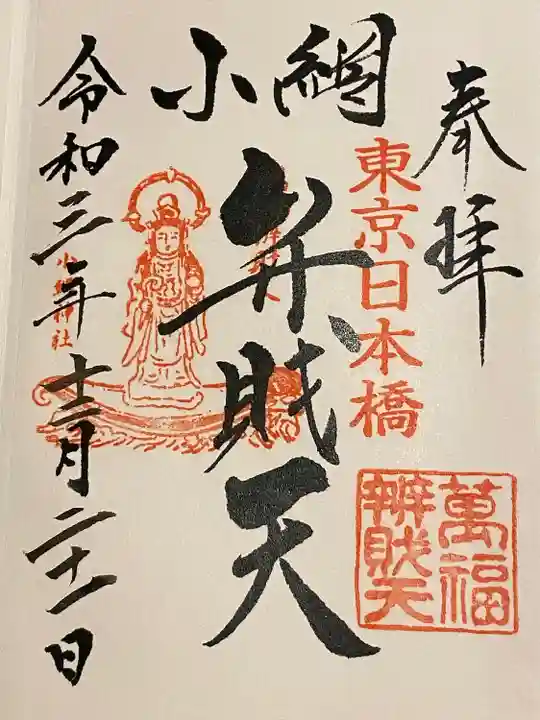 奉拝
東京日本橋
萬福
辨財天
小網
弁財天
小網神社
令和三年十二月二十一日